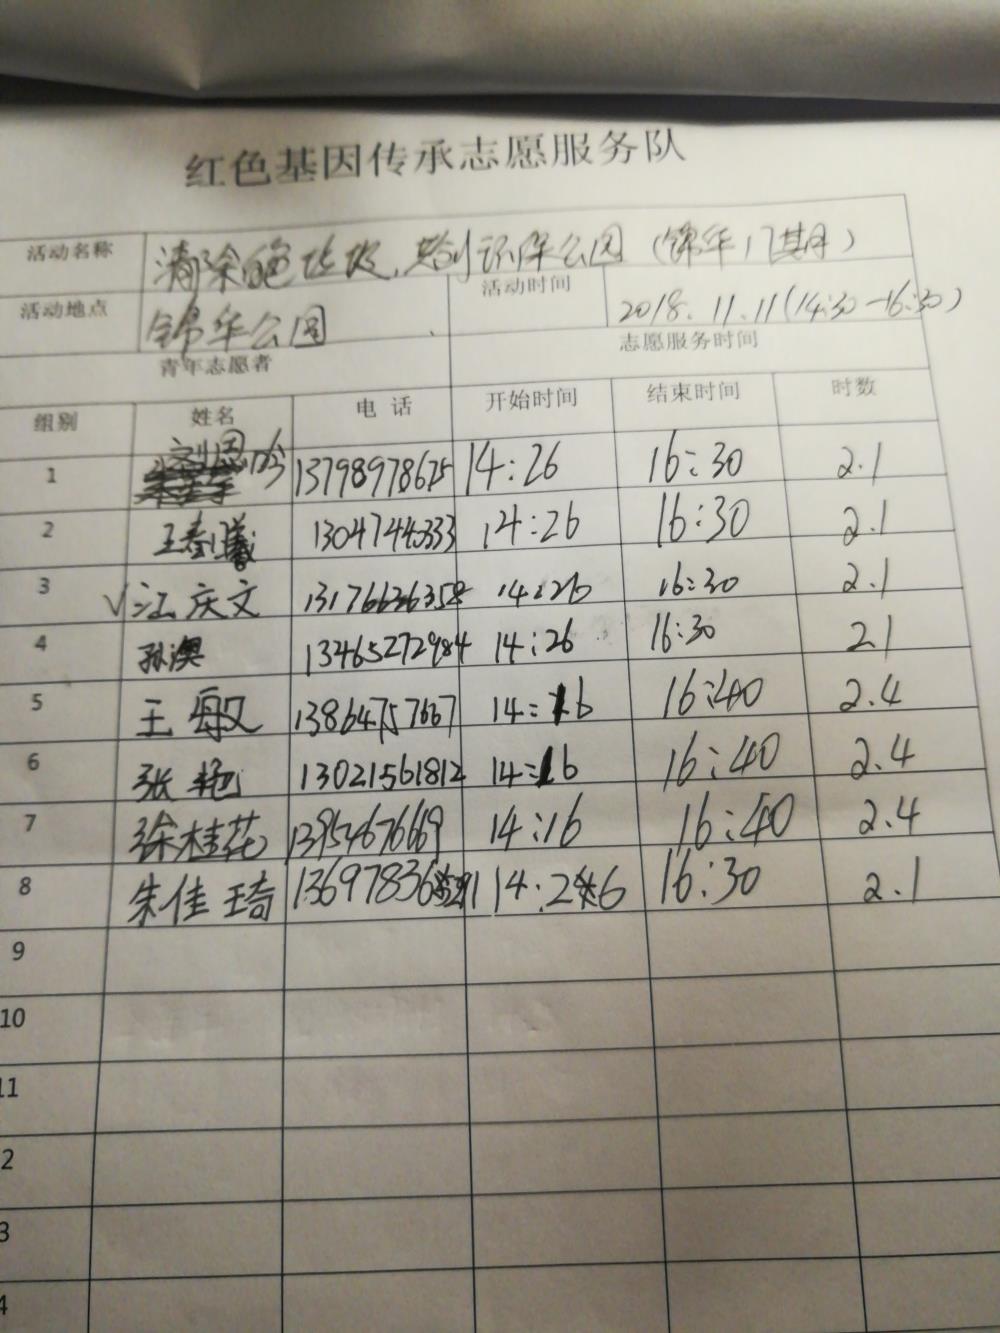 红色基因传承志愿服务队
活动名称 清除白色垃圾，共创环保公园（锦华17期）
活动地点 锦华公园 活动时间 2018.11.11(14:30-16:30)
青年志愿者 志愿服务时间
组别 姓名 电 话 开始时间 结束时间 时数
1 刘恩 13798978675 14:26 16:30 2.1
2 王春曦 13047444333 14:26 16:30 2.1
3 √江庆文 13176636358 14:26 16:30 2.1
4 孙澳 13465272984 14:26 16:30 2.1
5 王敏 13864757667 14:16 16:40 2.4
6 张艳 13021561812 14:16 16:40 2.4
7 徐桂花 13954676669 14:16 16:40 2.4
8 朱佳琦 14:26 16:30 2.1
9
10
11
2
3
4